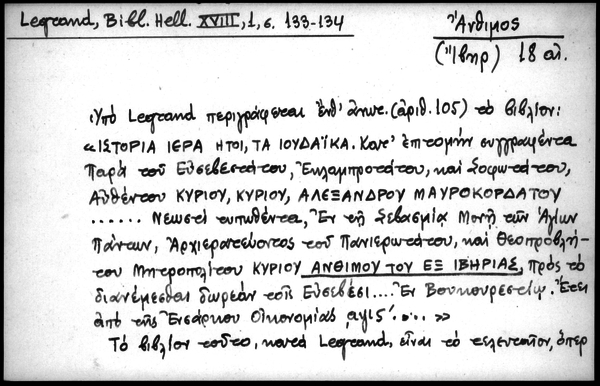 Legrand, Bibl. Hell. XVIII, 1, σ. 133-134
Ἄνθιμος
(Ἴβηρ) 18 αἰ.
Ὑπὸ Legrand περιγράφεται ἐνθ' ἀνωτ. (ἀριθ. 105) τὸ βιβλίον:
«ΙΣΤΟΡΙΑ ΙΕΡΑ ΗΤΟΙ, ΤΑ ΙΟΥΔΑΪΚΑ. Κατ' ἐπιτομὴν συγγραφέντα
Παρὰ τοῦ Εὐσεβεστάτου, Ἐκλαμπροτάτου, καὶ Σοφωτάτου,
Αὐθέντου ΚΥΡΙΟΥ, ΚΥΡΙΟΥ, ΑΛΕΞΑΝΔΡΟΥ ΜΑΥΡΟΚΟΡΔΑΤΟΥ
...... Νεωστὶ τυπωθέντα, Ἐν τῇ Σεβασμίᾳ Μονῇ τῶν Ἁγίων
Πάντων, Ἀρχιερατεύοντος τοῦ Πανιερωτάτου, καὶ Θεοπροβλή-
του Μητροπολίτου ΚΥΡΙΟΥ ΑΝΘΙΜΟΥ ΤΟΥ ΕΞ ΙΒΗΡΙΑΣ, πρὸς τὸ
διανέμεσθαι δωρεὰν τοῖς Εὐσεβέσι.... Ἐν Βουκουρεστίῳ. Ἔτει
ἀπὸ τῆς Ἐνσάρκου Οἰκονομίας ͵αψις'.... »
Τὸ βιβλίον τοῦτο, κατὰ Legrand, εἶναι τὸ τελευταῖον, ὅπερ